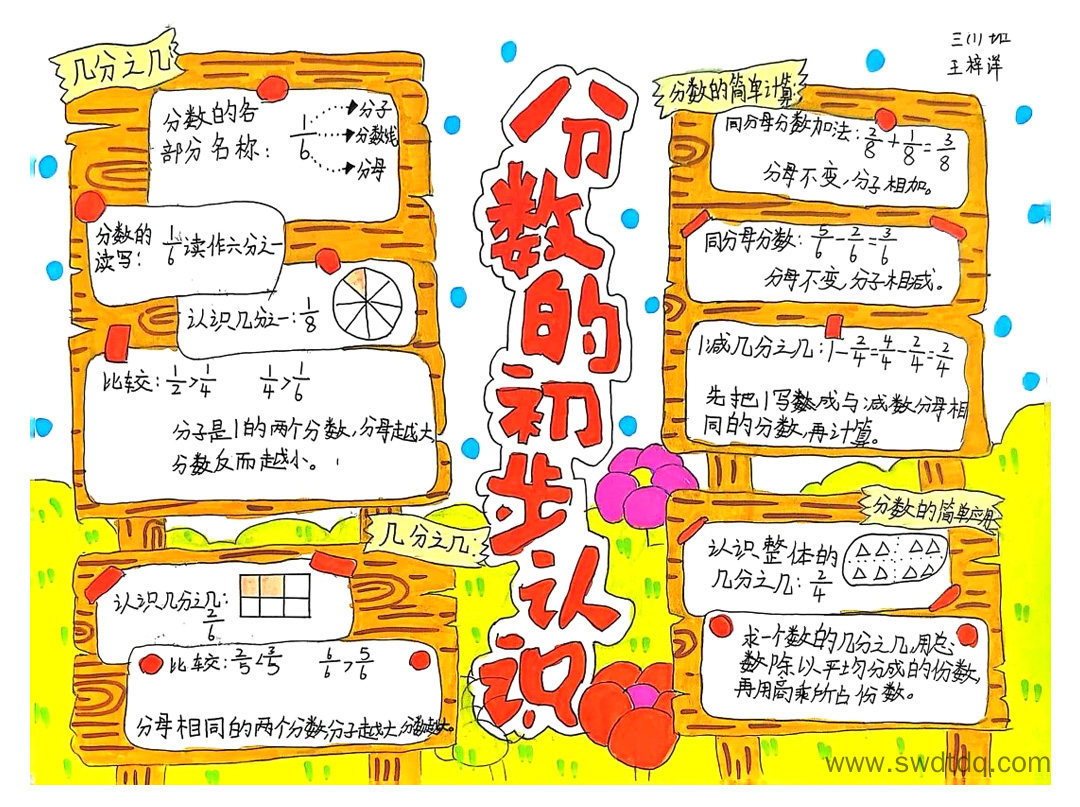 三(1)班
王梓洋
分数的初步认识
几分之几:
分数的各
部分名称:
1/6
分子
分数线
分母
分数的
读写: 1/6 读作六分之一
认识几分之一: 1/8
比较: 1/2>1/4 1/4>1/6
分子是1的两个分数,分母越大,
分数反而越小。
几分之几:
认识几分之几:
2/6
比较: 2/5<3/5 6/6>5/6
分母相同的两个分数分子越大,分数越大。
分数的简单计算:
同分母分数加法: 2/8+1/8=3/8
分母不变,分子相加。
同分母分数: 5/6-2/6=3/6
分母不变,分子相减。
1减几分之几: 1-2/4=4/4-2/4=2/4
先把1写成与减数分母相
同的分数,再计算。
分数的简单应用
认识整体的
几分之几: 2/4
求一个数的几分之几,用总
数除以平均分成的份数,
再用商乘所占份数。
www.swdtdq.com